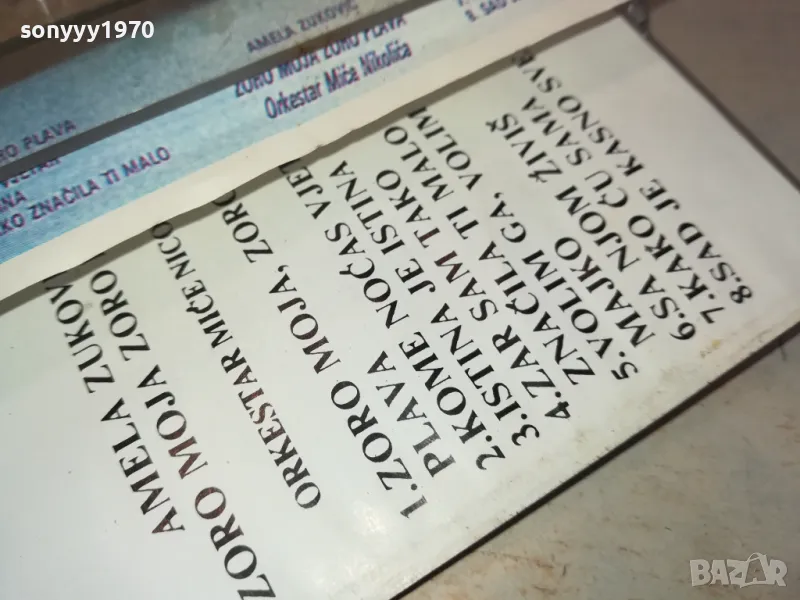 sonyyy1970
AMELA ZUKOVIĆ
ZORO MOJA ZORO PLAVA
Orkestar Miće Nikolića
8. SAD
RO PLAVA
KO ZNAČILA TI MALO
AMELA ZUKOV
ZORO MOJA ZORO
ORKESTAR MIĆE NICO
1.ZORO MOJA, ZORO
PLAVA
2.KOME NOĆAS VJET
3.ISTINA JE ISTINA
4.ZAR SAM TAKO
ZNAČILA TI MALO
5.VOLIM GA, VOLIM
MAJKO
6.SA NJOM ŽIVIŠ
7.KAKO ĆU SAMA
8.SAD JE KASNO SVE
BAZAR